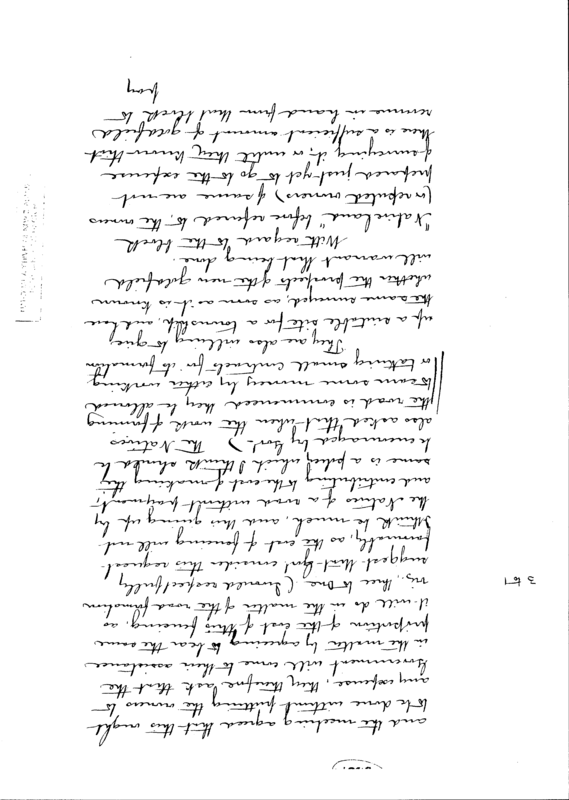 and the meeting agreed that this ought
to be done without putting the owners to
any expense, they therefore ask that the
Government will come to their assistance
in the matter by agreeing to bear the same
proportion of the cost of this fencing, as
it will do in the matter of the road formation
viz, three to one. (I would respectfully
suggest that Govt. consider this request
favourably, as the cost of fencing will not
I think be much, and this giving up by
the Natives of a road without payment,
and contributing to the cost of making the
same is a policy which I think should be
be encouraged by Govt.) The Natives
also asked that when the work of forming
the road is commenced they be allowed
to earn some money by either working
or taking small contracts for its formation
They are also willing to give
up a suitable site for a township, and have
the same surveyed, as soon as it is known
whether the prospects of the new goldfield
will warrant that being done.
With regard to the block
"Native land" before referred to, the owners
(or reputed owners) of same are not
prepared just yet to go to the expense
of surveying it, or until they know that
there is a sufficient amount of goldfield
revenue in hand from that block to
pay
3 to 1